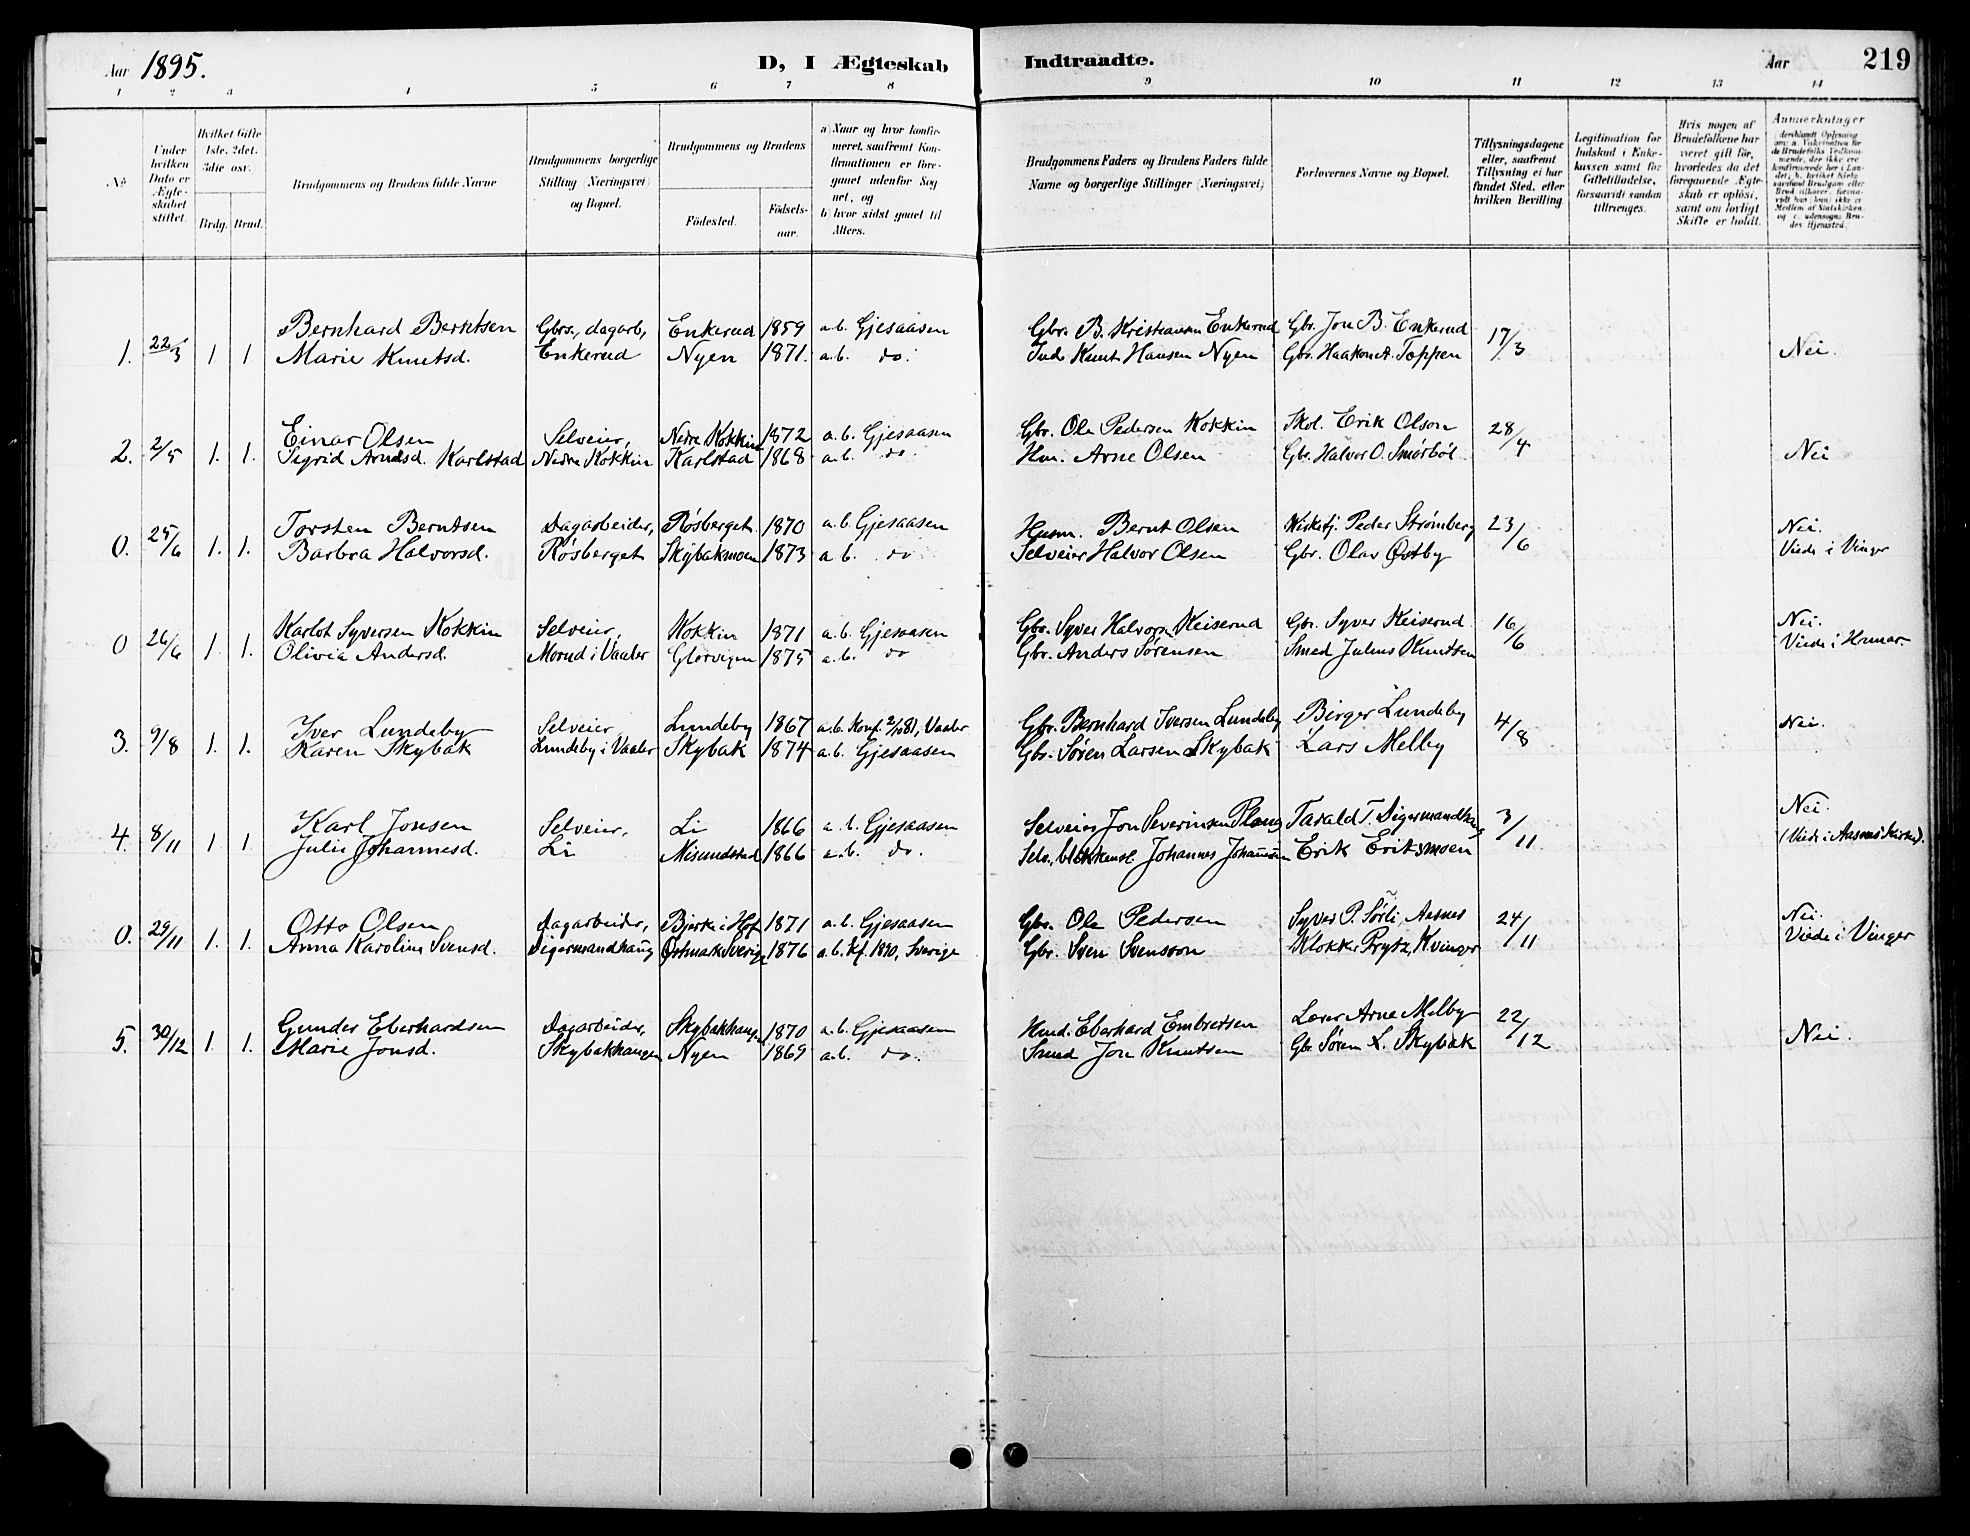 Aar 1895. D, I Ægteskab Indtraadte. Aar 219
1 2 3 4 5 6 7 8 9 10 11 12 13 14
No
Under hvilken Dato er Ægteskabet stiftet.
Hvilket Gifte 1ste, 2det, 3die osv.
Brdg. Brud.
Brudgommens og Brudens fulde Navne
Brudgommens borgerlige Stilling (Næringsvei) og Bopæl.
Brudgommens og Brudens
Fødested.
Fødselsaar.
a) Naar og hvor konfirmeret, saafremt Konfirmationen er foregaaet udenfor Sognet, og
b) hvor sidst gaaet til Alters.
Brudgommens Faders og Brudens Faders fulde Navne og borgerlige Stillinger (Næringsvei)
Forlovernes Navne og Bopæl.
Tillysningsdagene eller, saafremt Tillysning ei har fundet Sted, efter hvilken Bevilling
Legitimation for Indskud i Enkekassen samt for Giftetilladelse, forsaavidt saadan tiltrænges.
Hvis nogen af Brudefolkene har været gift før, hvorledes da det foregaaende Ægteskab er opløst, samt om lovligt Skifte er holdt.
Anmerkninger
Bernhard Berntsen Gbrs., dagarb, Enkerud 1859 a.b. Gjesaasen Gbr. B. Kristiansen Enkerud Gbr. Jon B. Enkerud
1. 22/3 1 1 Marie Knutsd. Enkerud Nyen 1871. a.b. do. Ind. Knut Hansen Nyen Gbr. Haakon A. Toppen 17/3 Nei.
Einar Olsen Selveier, Nedre Kokkin 1872 a.b. Gjesaasen Gbr. Ole Pedersen Kokkin Skol. Erik Olson
2. 2/5 1. 1. Sigrid Arnesd. Karlstad Nedre Kokkin Karlstad 1868 a.b. do Hm. Arne Olsen Gbr. Halvor O. Smørbøl 28/4 Nei
Torsten Berntsen Dagarbeider, Røsberget 1870 a.b. Gjesaasen Husm. Bernt Olsen Kirketj. Peder Strømberg Nei.
0. 25/6 1. 1. Barbra Halvorsd. Røsberget Skybakmoen 1873 a b. do Selveier Halvor Olsen Gbr. Olav Østby 23/6 Viede i Vinger
Karlot Syversen Kokkin Selveier, Kokkin 1871 a.b. Gjesaasen Gbr. Syver Halvors. Keiserud Gbr. Syver Keiserud Nei.
0 26/6 1. 1. Olivia Andersd. Morud i Vaaler Glorvigen 1875 a.b. do Gbr. Anders Sørensen Smed Julius Knutsen 16/6 Viede i Hamar.
Iver Lundeby Selveier Lundeby 1867 a.b. Konf. 2/10 81, Vaaler Gbr. Bernhard Iversen Lundeby Birger Lundeby Nei.
3. 9/8 1. 1. Karen Skybak Lundeby i Vaaler Skybak 1874 a.b. Gjesaasen Gbr. Søren Larsen Skybak Lars Melby 4/8
Karl Jonsen Selveier, Li 1866 a.b. Gjesaasen Selveier Jon Severinsen Plong Tarald T. Digermandhaug Nei.
4. 8/11 1 1. Julie Johannesd. Li Nisundstad 1866 a.b. do. Johannes Johannsen Erik Eriksmoen 3/11 (Viede i Aasnes Kirke).
Otto Olsen Dagarbeider, Bjerke i Hof 1871 a.b. Gjesaasen Gbr. Ole Pedersen Syver P. Sørli, Aasnes Nei.
0. 29/11 1. 1. Anna Karoline Svensd. Digermandhaug Østmark Sverige 1876 a.b. Kf. 1890, Sverige Gbr. Sven Svensson Klokker Prytz, Kvinger 24/11 Viede i Vinger
Gunder Eberhardsen Dagarbeider, Skybakhaugen 1870 a.b. Gjesaasen Hmd. Eberhard Embretsen Lærer Arne Melby
5. 30/12 1. 1. Marie Jonsd. Skybakhaugen Nyen 1869 a.b. do. Smed Jon Knutsen Gb. Søren L. Skybak 22/12 Nei.